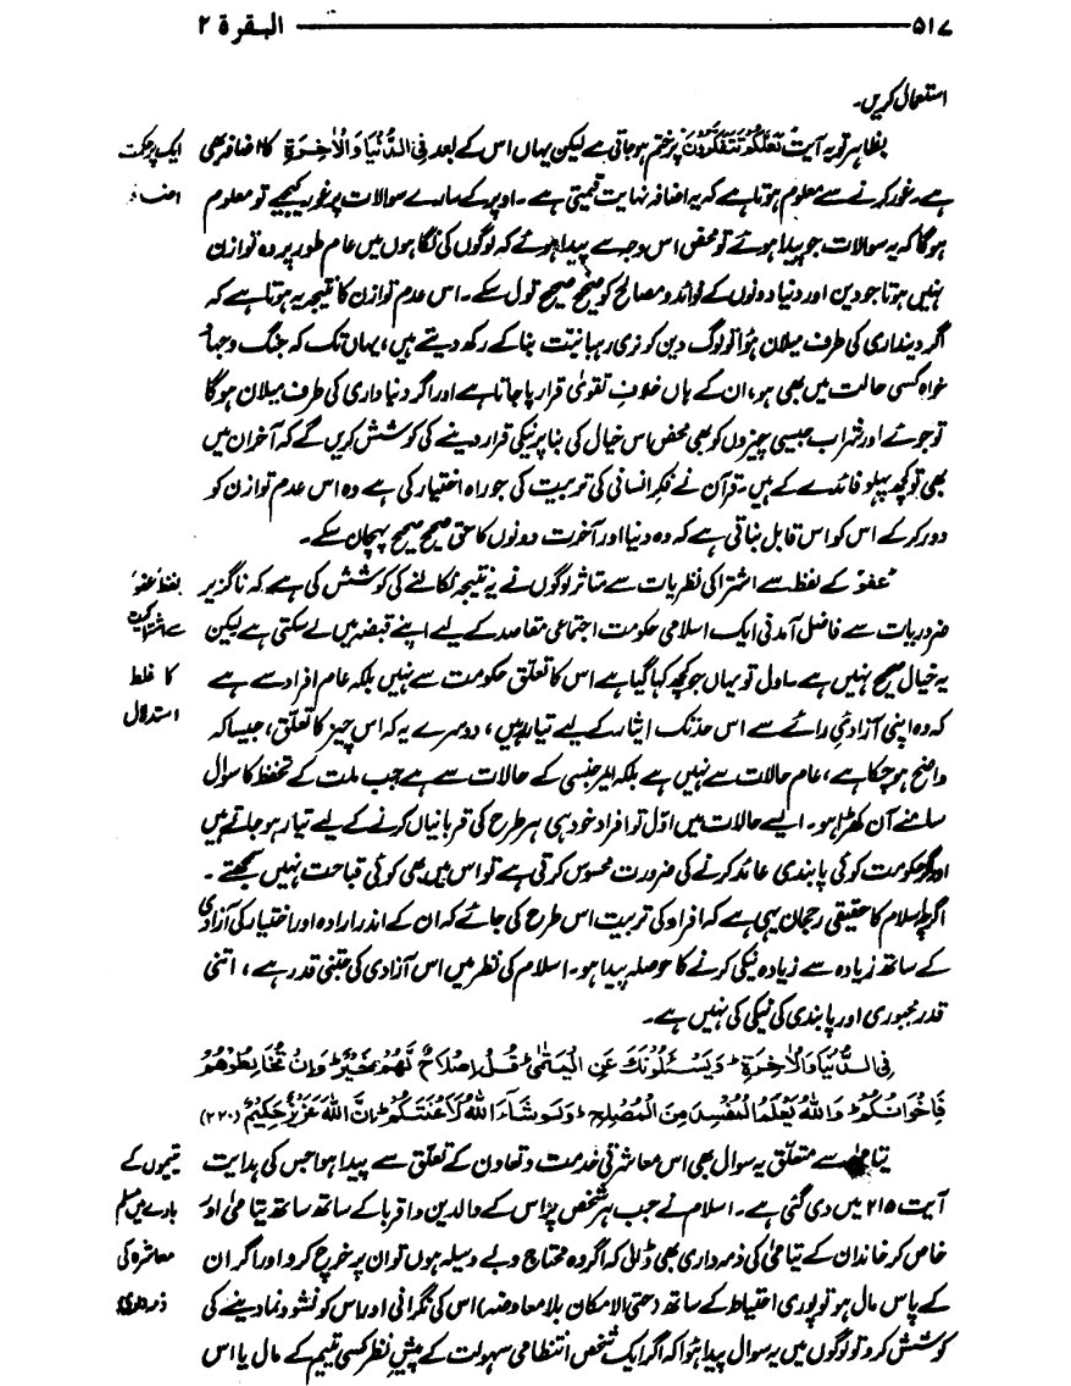 ۵۱۷ ——— البقرة ۲
استعمال کریں۔
بظاہر تو یہ آیت لَعَلَّكُمْ تَتَفَكَّرُونَ پر ختم ہو جاتی ہے لیکن یہاں اس کے بعد فِي الدُّنْيَا وَالْاٰخِرَةِ کا اضافہ بھی
ایک پر حکمت
ہے۔ غور کرنے سے معلوم ہوتا ہے کہ یہ اضافہ نہایت قیمتی ہے۔ اوپر کے سارے سوالات پر غور کیجیے تو معلوم
اضافہ
ہوگا کہ یہ سوالات جو پیدا ہوئے تو محض اس وجہ سے پیدا ہوئے کہ لوگوں کی نگاہوں میں عام طور پر وہ توازن
نہیں ہوتا جو دین اور دنیا دونوں کے فوائد و مصالح کو صحیح صحیح تول سکے۔ اس عدم توازن کا نتیجہ یہ ہوتا ہے کہ
اگر دینداری کی طرف میلان ہؤا تو لوگ دین کو نری رہبانیت بنا کے رکھ دیتے ہیں، یہاں تک کہ جنگ و جہاد
خواہ کسی حالت میں بھی ہو، ان کے ہاں خلافِ تقویٰ قرار پا جاتا ہے اور اگر دنیا داری کی طرف میلان ہوگا
تو جوئے اور شراب جیسی چیزوں کو بھی محض اس خیال کی بنا پر نیکی قرار دینے کی کوشش کریں گے کہ آخر ان میں
بھی تو کچھ پہلو فائدے کے ہیں۔ قرآن نے فکرِ انسانی کی تربیت کی جو راہ اختیار کی ہے وہ اس عدم توازن کو
دور کر کے اس کو اس قابل بناتی ہے کہ وہ دنیا اور آخرت دونوں کا حق صحیح صحیح پہچان سکے۔
'عفو' کے لفظ سے اشتراکی نظریات سے متاثر لوگوں نے یہ نتیجہ نکالنے کی کوشش کی ہے کہ ناگزیر
لفظ 'عفو'
ضروریات سے فاضل آمدنی ایک اسلامی حکومت اجتماعی مقاصد کے لیے اپنے قبضہ میں لے سکتی ہے لیکن
سے اشتراکیت
یہ خیال صحیح نہیں ہے۔ اول تو یہاں جو کچھ کہا گیا ہے اس کا تعلّق حکومت سے نہیں بلکہ عام افراد سے ہے
کا غلط
کہ وہ اپنی آزادئی رائے سے اس حد تک ایثار کے لیے تیار رہیں، دوسرے یہ کہ اس چیز کا تعلّق، جیسا کہ
استدلال
واضح ہو چکا ہے، عام حالات سے نہیں ہے بلکہ ایمرجنسی کے حالات سے ہے جب ملت کے تحفظ کا سوال
سامنے آن کھڑا ہو۔ ایسے حالات میں اوّل تو افراد خود ہی ہر طرح کی قربانیاں کرنے کے لیے تیار ہو جاتے ہیں
اور اگر حکومت کوئی پابندی عائد کرنے کی ضرورت محسوس کرتی ہے تو اس میں بھی کوئی قباحت نہیں سمجھتے۔
اگرچہ اسلام کا حقیقی رجحان یہی ہے کہ افراد کی تربیت اس طرح کی جائے کہ ان کے اندر ارادہ اور اختیار کی آزادی
کے ساتھ زیادہ سے زیادہ نیکی کرنے کا حوصلہ پیدا ہو۔ اسلام کی نظر میں اس آزادی کی جتنی قدر ہے، اتنی
قدر مجبوری اور پابندی کی نیکی کی نہیں ہے۔
فِي الدُّنْيَا وَالْاٰخِرَةِ ؕ وَيَسْـَٔلُوْنَكَ عَنِ الْيَتٰمٰى ؕ قُلْ اِصْلَاحٌ لَّهُمْ خَيْرٌ ؕ وَاِنْ تُخَالِطُوْهُمْ
فَاِخْوَانُكُمْ ؕ وَاللّٰهُ يَعْلَمُ الْمُفْسِدَ مِنَ الْمُصْلِحِ ؕ وَلَوْ شَآءَ اللّٰهُ لَاَعْنَتَكُمْ ؕ اِنَّ اللّٰهَ عَزِيْزٌ حَكِيْمٌ (۲۲۰)
یتامیٰ سے متعلّق یہ سوال بھی اس معاشرتی خدمت و تعاون کے تعلّق سے پیدا ہوا جس کی ہدایت
یتیموں کے
آیت ۲۱۵ میں دی گئی ہے۔ اسلام نے جب ہر شخص پر اس کے والدین و اقربا کے ساتھ ساتھ یتامیٰ اور
بارے میں مسلم
خاص کر خاندان کے یتامیٰ کی ذمہ داری بھی ڈالی کہ اگر وہ محتاج و بے وسیلہ ہوں تو ان پر خرچ کرو اور اگر ان
معاشرہ کی
کے پاس مال ہو تو پوری احتیاط کے ساتھ (حتی الامکان بلا معاوضہ) اس کی نگرانی اور اس کو نشو و نما دینے کی
ذمہ داری
کوشش کرو تو لوگوں میں یہ سوال پیدا ہؤا کہ اگر ایک شخص انتظامی سہولت کے پیشِ نظر کسی یتیم کے مال یا اس